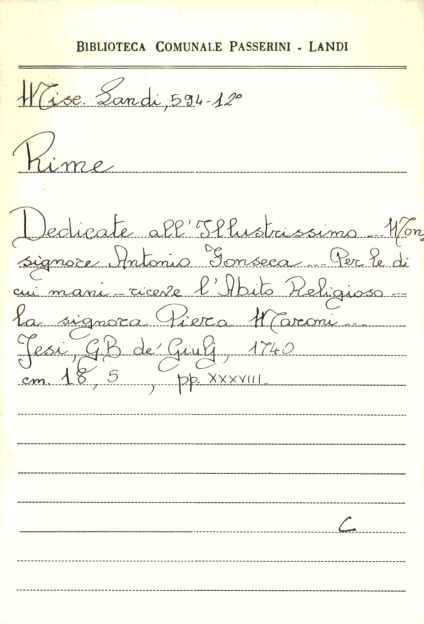 BIBLIOTECA COMUNALE PASSERINI - LANDI
Misc. Landi, 594-12°
Rime
Dedicate all'Illustrissimo ... Mon
signore Antonio Fonseca ... Per le di
cui mani ... riceve l'Abito Religioso ...
la signora Piera Maroni ...
Jesi, G.B. de' Giulj, 1740
cm. 18, 5 , pp. XXXVIII.
C